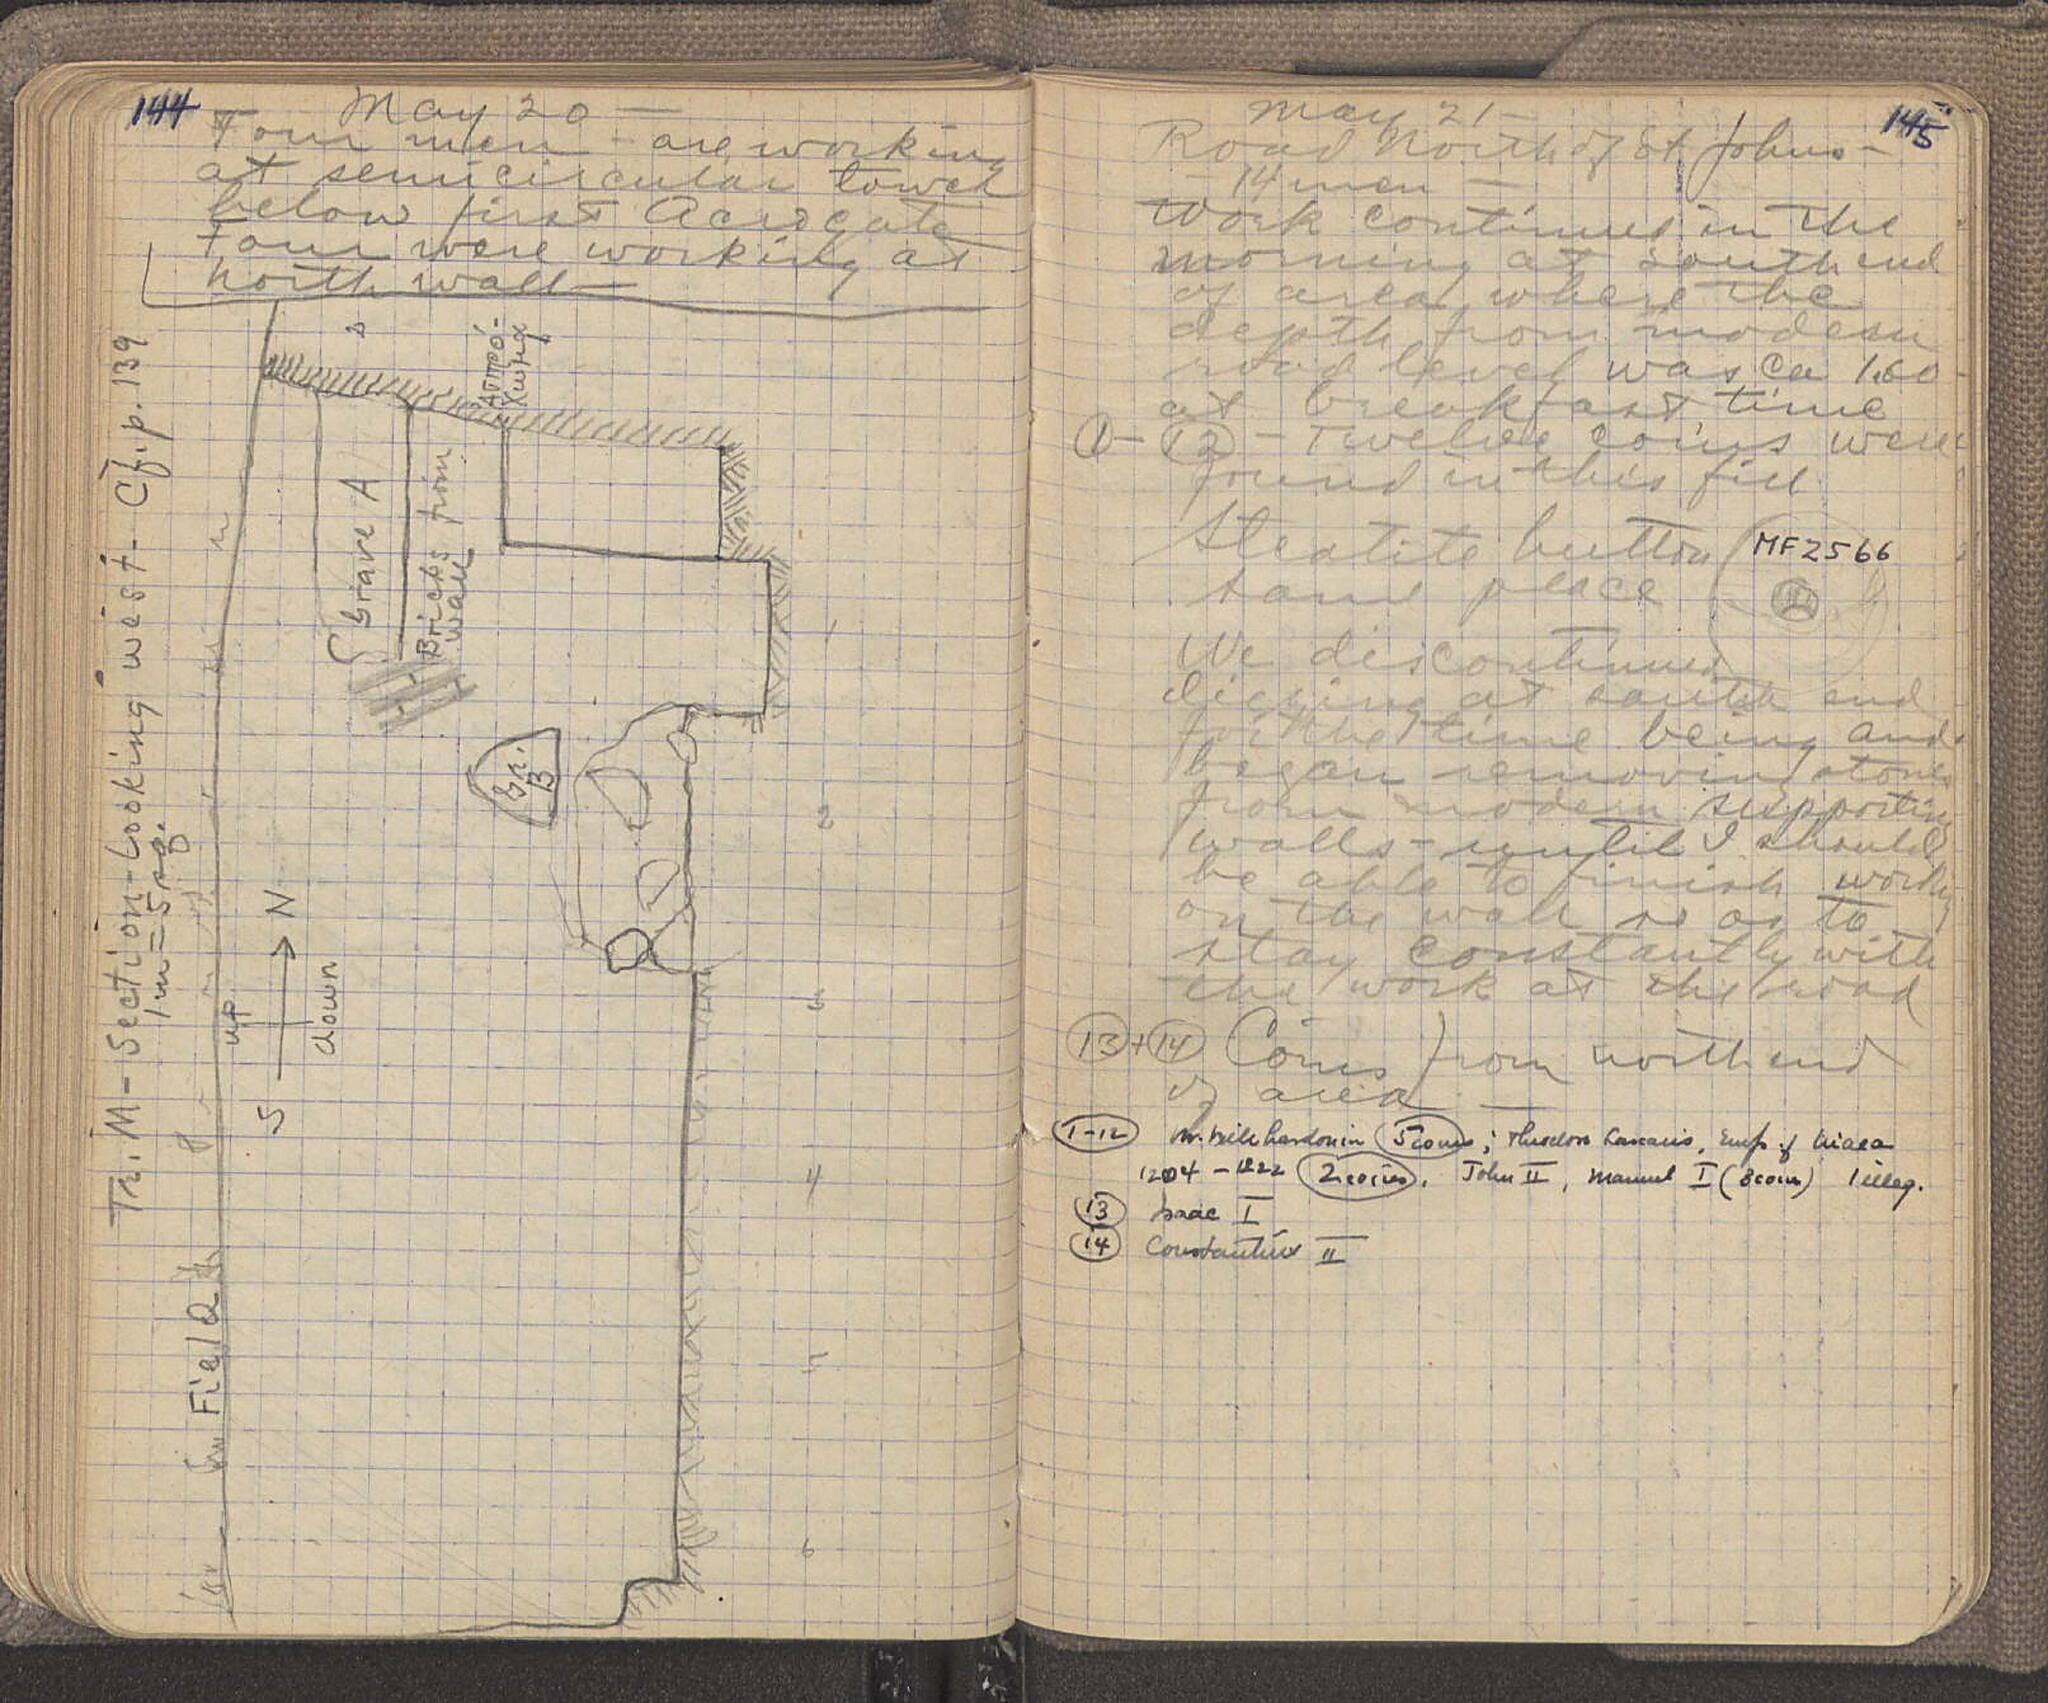 144
May 20 —
Four men - are working
at semicircular tower
below first Acrogate
Four were working at
north wall —
Tr. M - Section - Looking west - Cf. p. 139
1m = 5 sq.
Grave A
Bricks from
wall
Ἀπρό-
χωμα
Gr.
B
S
N
up
down
Field
1
2
3
4
5
6
145
May 21 -
Road North of St Johns -
- 14 men -
Work continues in the
morning at south end
of area where the
depth from modern
road level was ca 1.60
at breakfast time
① - ⑫ - Twelve coins were
found in this fill
Steatite button MF2566
same place
We discontinued
digging at south end
for the time being and
began removing stones
from modern supporting
walls - until I should
be able to finish work
on the wall so as to
stay constantly with
the work at the road
⑬ + ⑭ Coins from north end
of area —
1-12 Villehardouin 5 coins; Theodore Lascaris, Emp. of Nicaea
1204 - 1222 2 coins, John II, Manuel I (3 coins) 1 illeg.
⑬ Isaac I
⑭ Constantius II